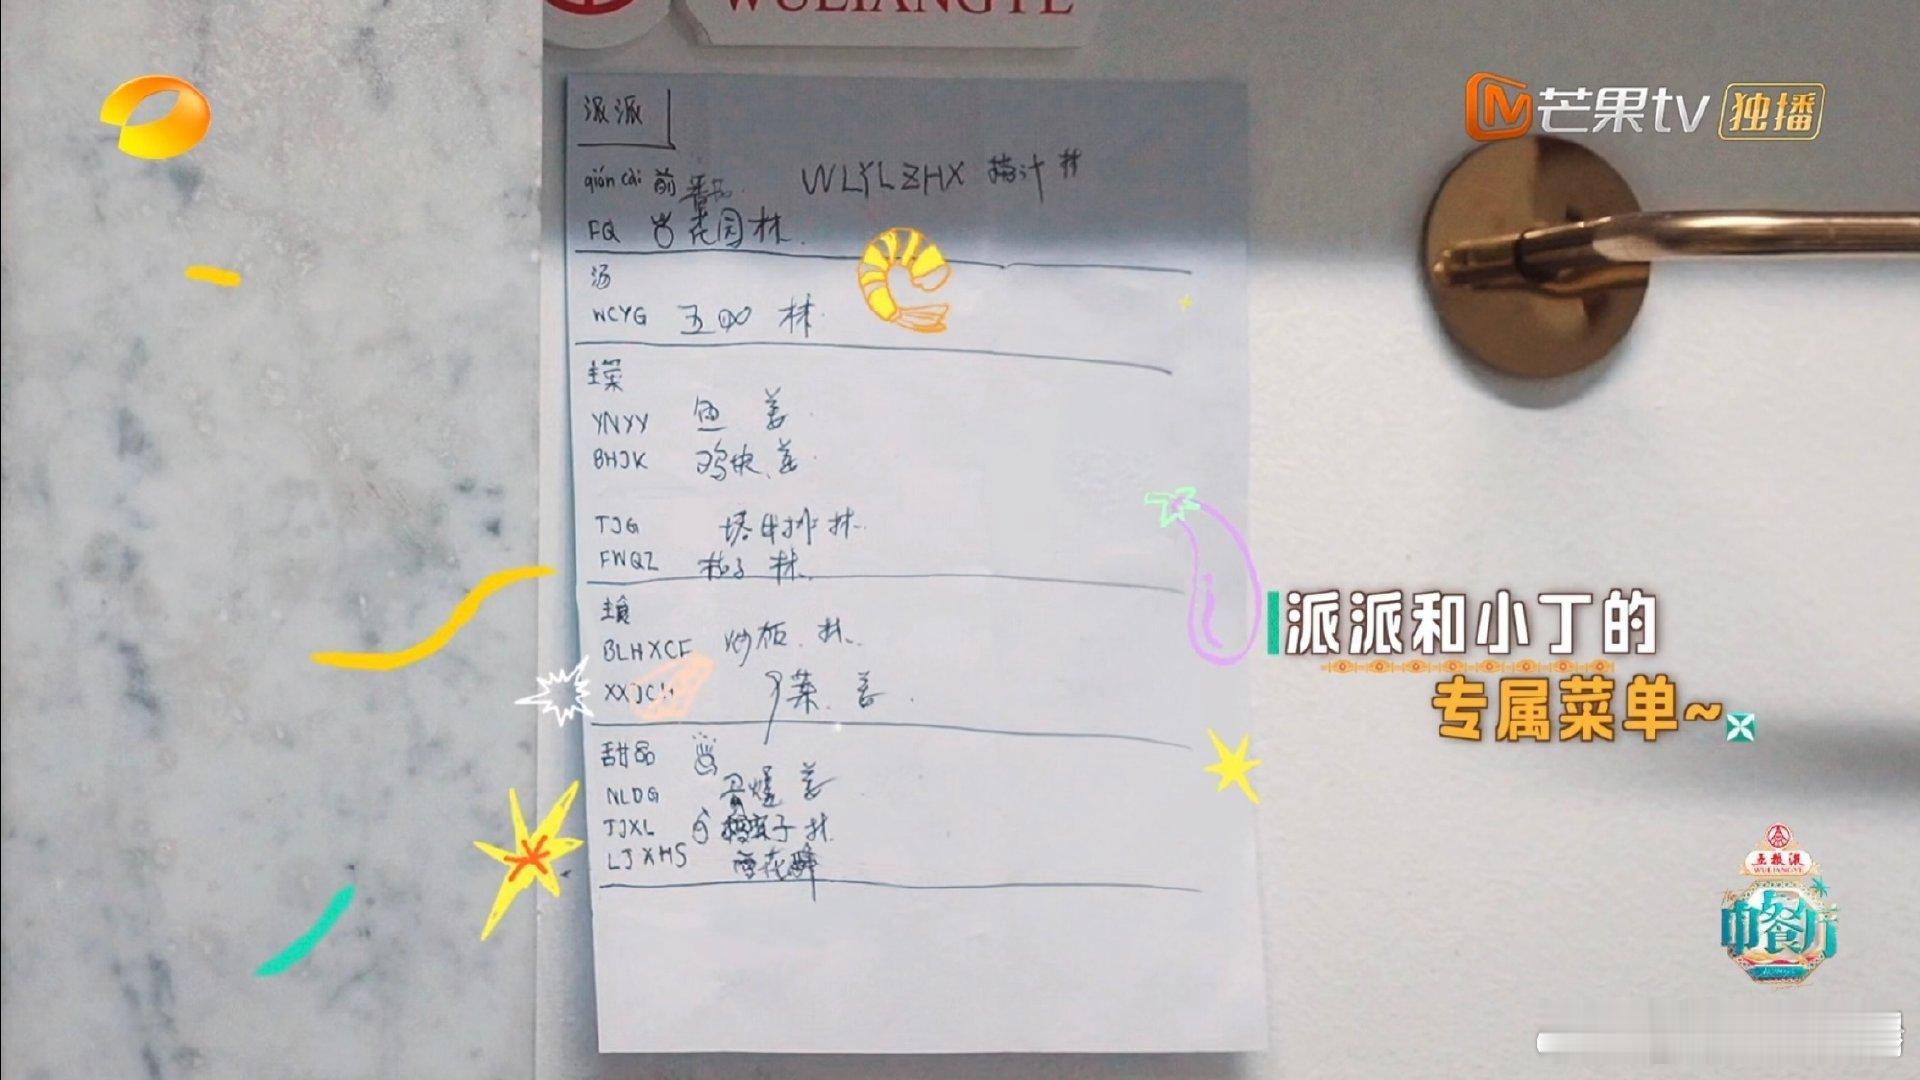 WULIANGYE
芒果tv 独播
派派
qián cài 前 WLYLZHX 林
FQ 花园 林
汤
WCYG 五 林
主菜
YNYY 鱼 姜
BHJK 鸡块 姜
TJG 塔牛排 林
FWQZ 茄子 林
主食
BLHXCF 炒饭 林
XXJC
菜 姜
甜品
NLDG 姜
TJXL 子 林
LJXHS 雪花酥
派派和小丁的
专属菜单~
五粮液
WULIANGYE
中餐厅